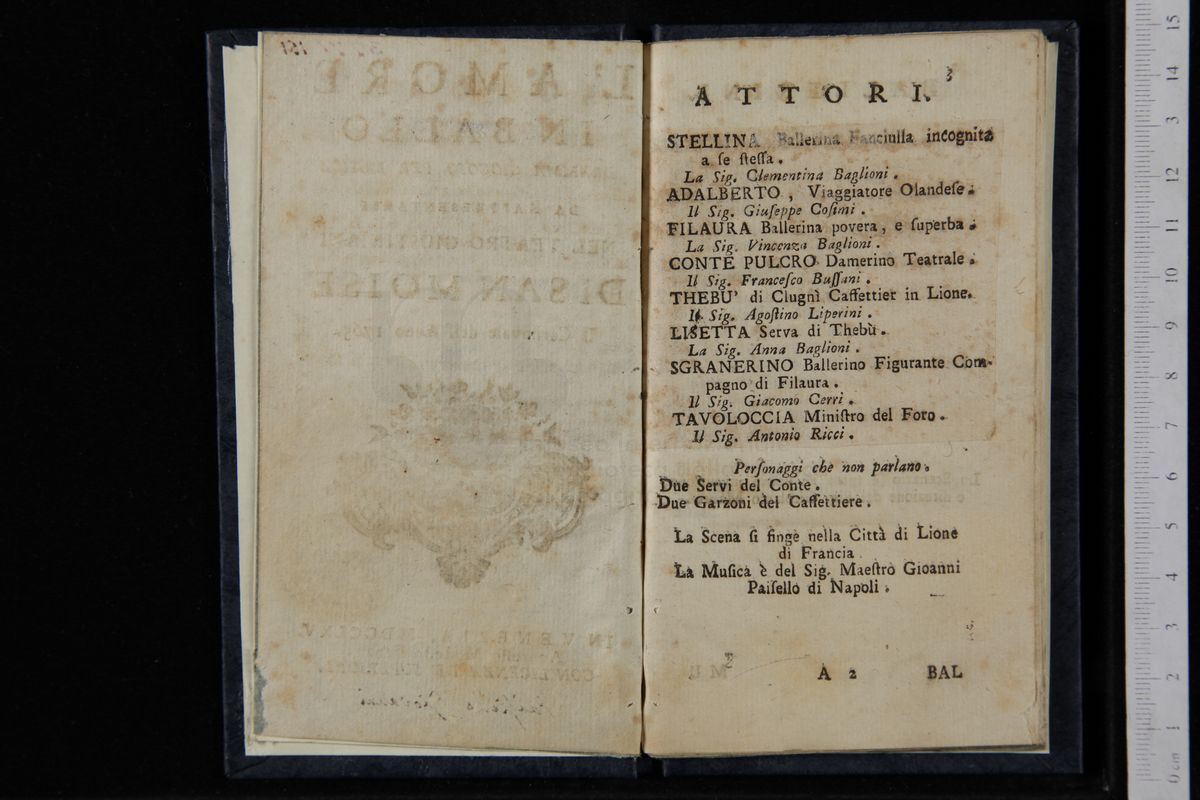 3
ATTORI.
STELLINA Ballerina Fanciulla incognita
a ſe ſteſſa.
La Sig. Clementina Baglioni.
ADALBERTO, Viaggiatore Olandeſe.
Il Sig. Giuſeppe Coſimi.
FILAURA Ballerina povera, e ſuperba.
La Sig. Vincenza Baglioni.
CONTE PULCRO Damerino Teatrale.
Il Sig. Franceſco Buſſani.
THEBU' di Clugnì Caffettier in Lione.
Il Sig. Agoſtino Liperini.
LISETTA Serva di Thebù.
La Sig. Anna Baglioni.
SGRANERINO Ballerino Figurante Com-
pagno di Filaura.
Il Sig. Giacomo Cerri.
TAVOLOCCIA Miniſtro del Foro.
Il Sig. Antonio Ricci.
Perſonaggi che non parlano.
Due Servi del Conte.
Due Garzoni del Caffettiere.
La Scena ſi finge nella Città di Lione
di Francia.
La Muſica è del Sig. Maeſtro Gioanni
Paiſello di Napoli.
A 2 BAL
15
14
13
12
11
10
9
8
7
6
5
4
3
2
1
0 cm